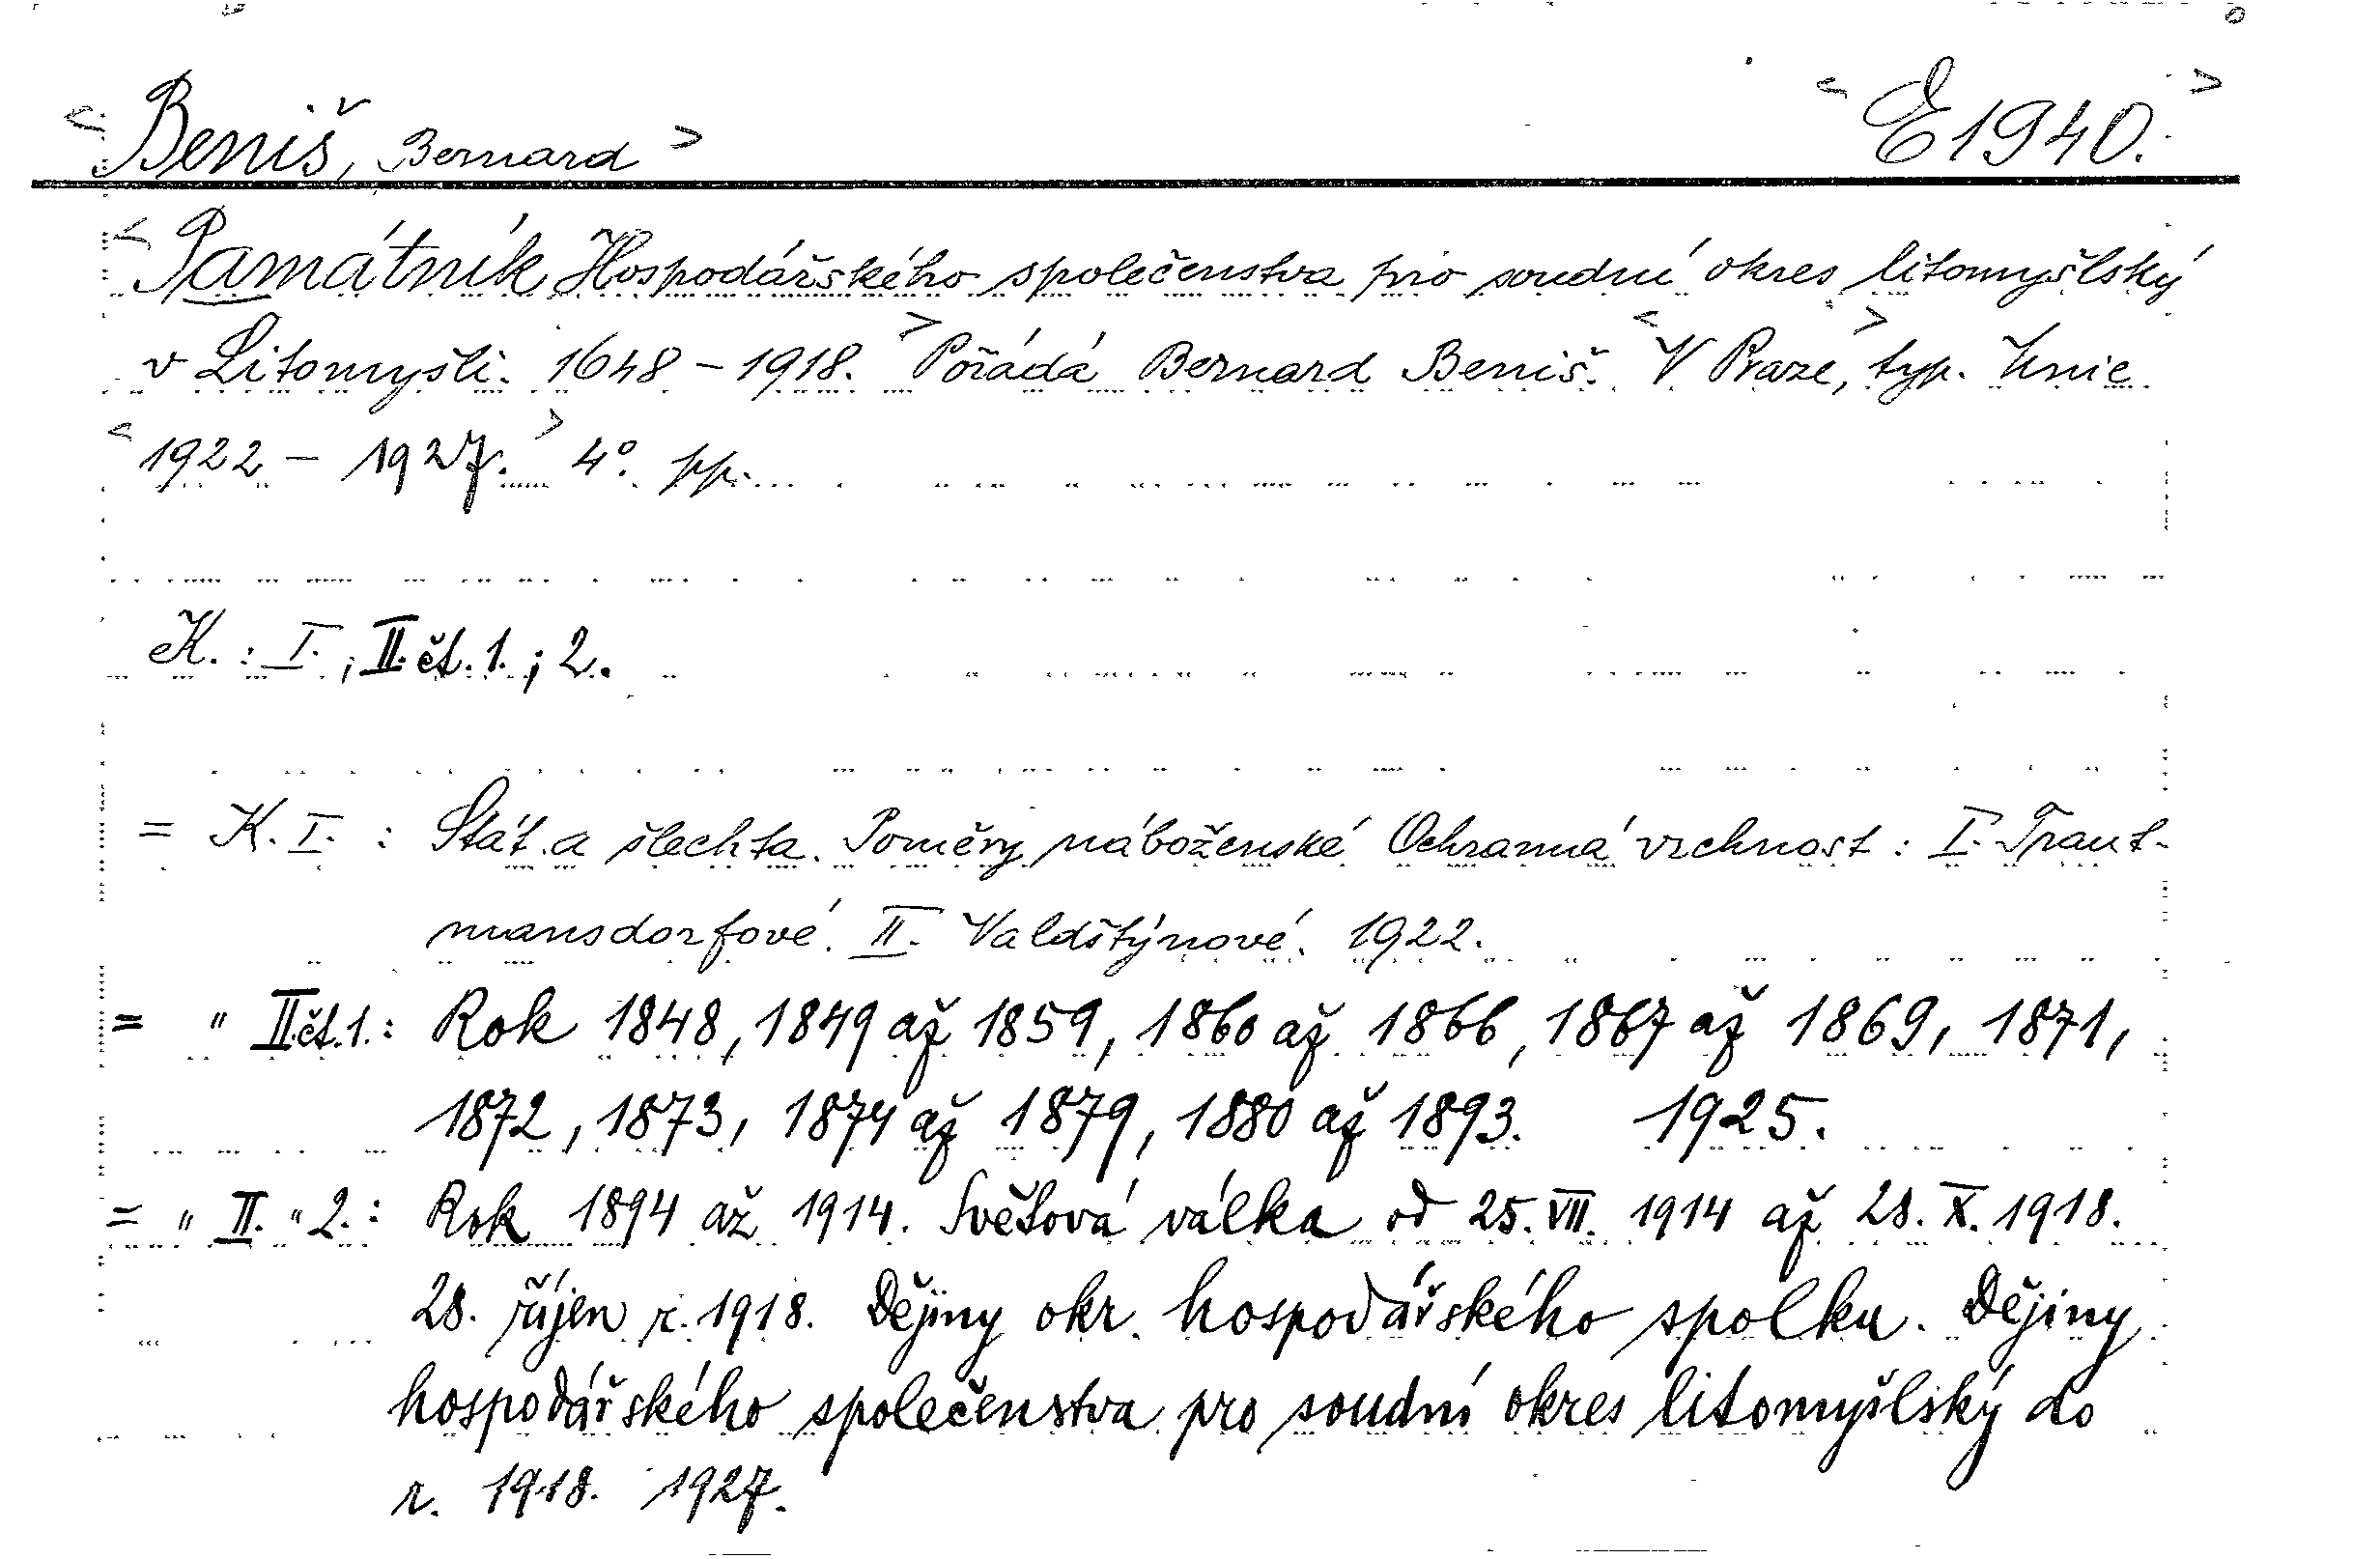 <Beniš, Bernard> <E 1940.>
<Památník Hospodářského společenstva pro soudní okres litomyšlský
v Litomyšli. 1648-1918.> Pořádá Bernard Beniš. <V Praze,> typ. Unie
<1922 - 1927.> 4°. pp.
K. : I. ; II. čt. 1. ; 2.
= K. I. : Stát a šlechta. Poměry náboženské Ochranná vrchnost : I. Traut-
mansdorfové. II. Valdštýnové. 1922.
= " II. čt. 1. : Rok 1848, 1849 až 1859, 1860 až 1866, 1867 až 1869, 1871,
1872, 1873, 1874 až 1879, 1880 až 1893. 1925.
= " II. " 2. : Rok 1894 až 1914. Světová válka od 25. VII. 1914 až 28. X. 1918.
28. říjen r. 1918. Dějiny okr. hospodářského spolku. Dějiny
hospodářského společenstva pro soudní okres litomyšlský do
r. 1918. 1927.